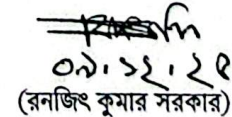 ০৯.১২.২৫
(রনজিৎ কুমার সরকার)